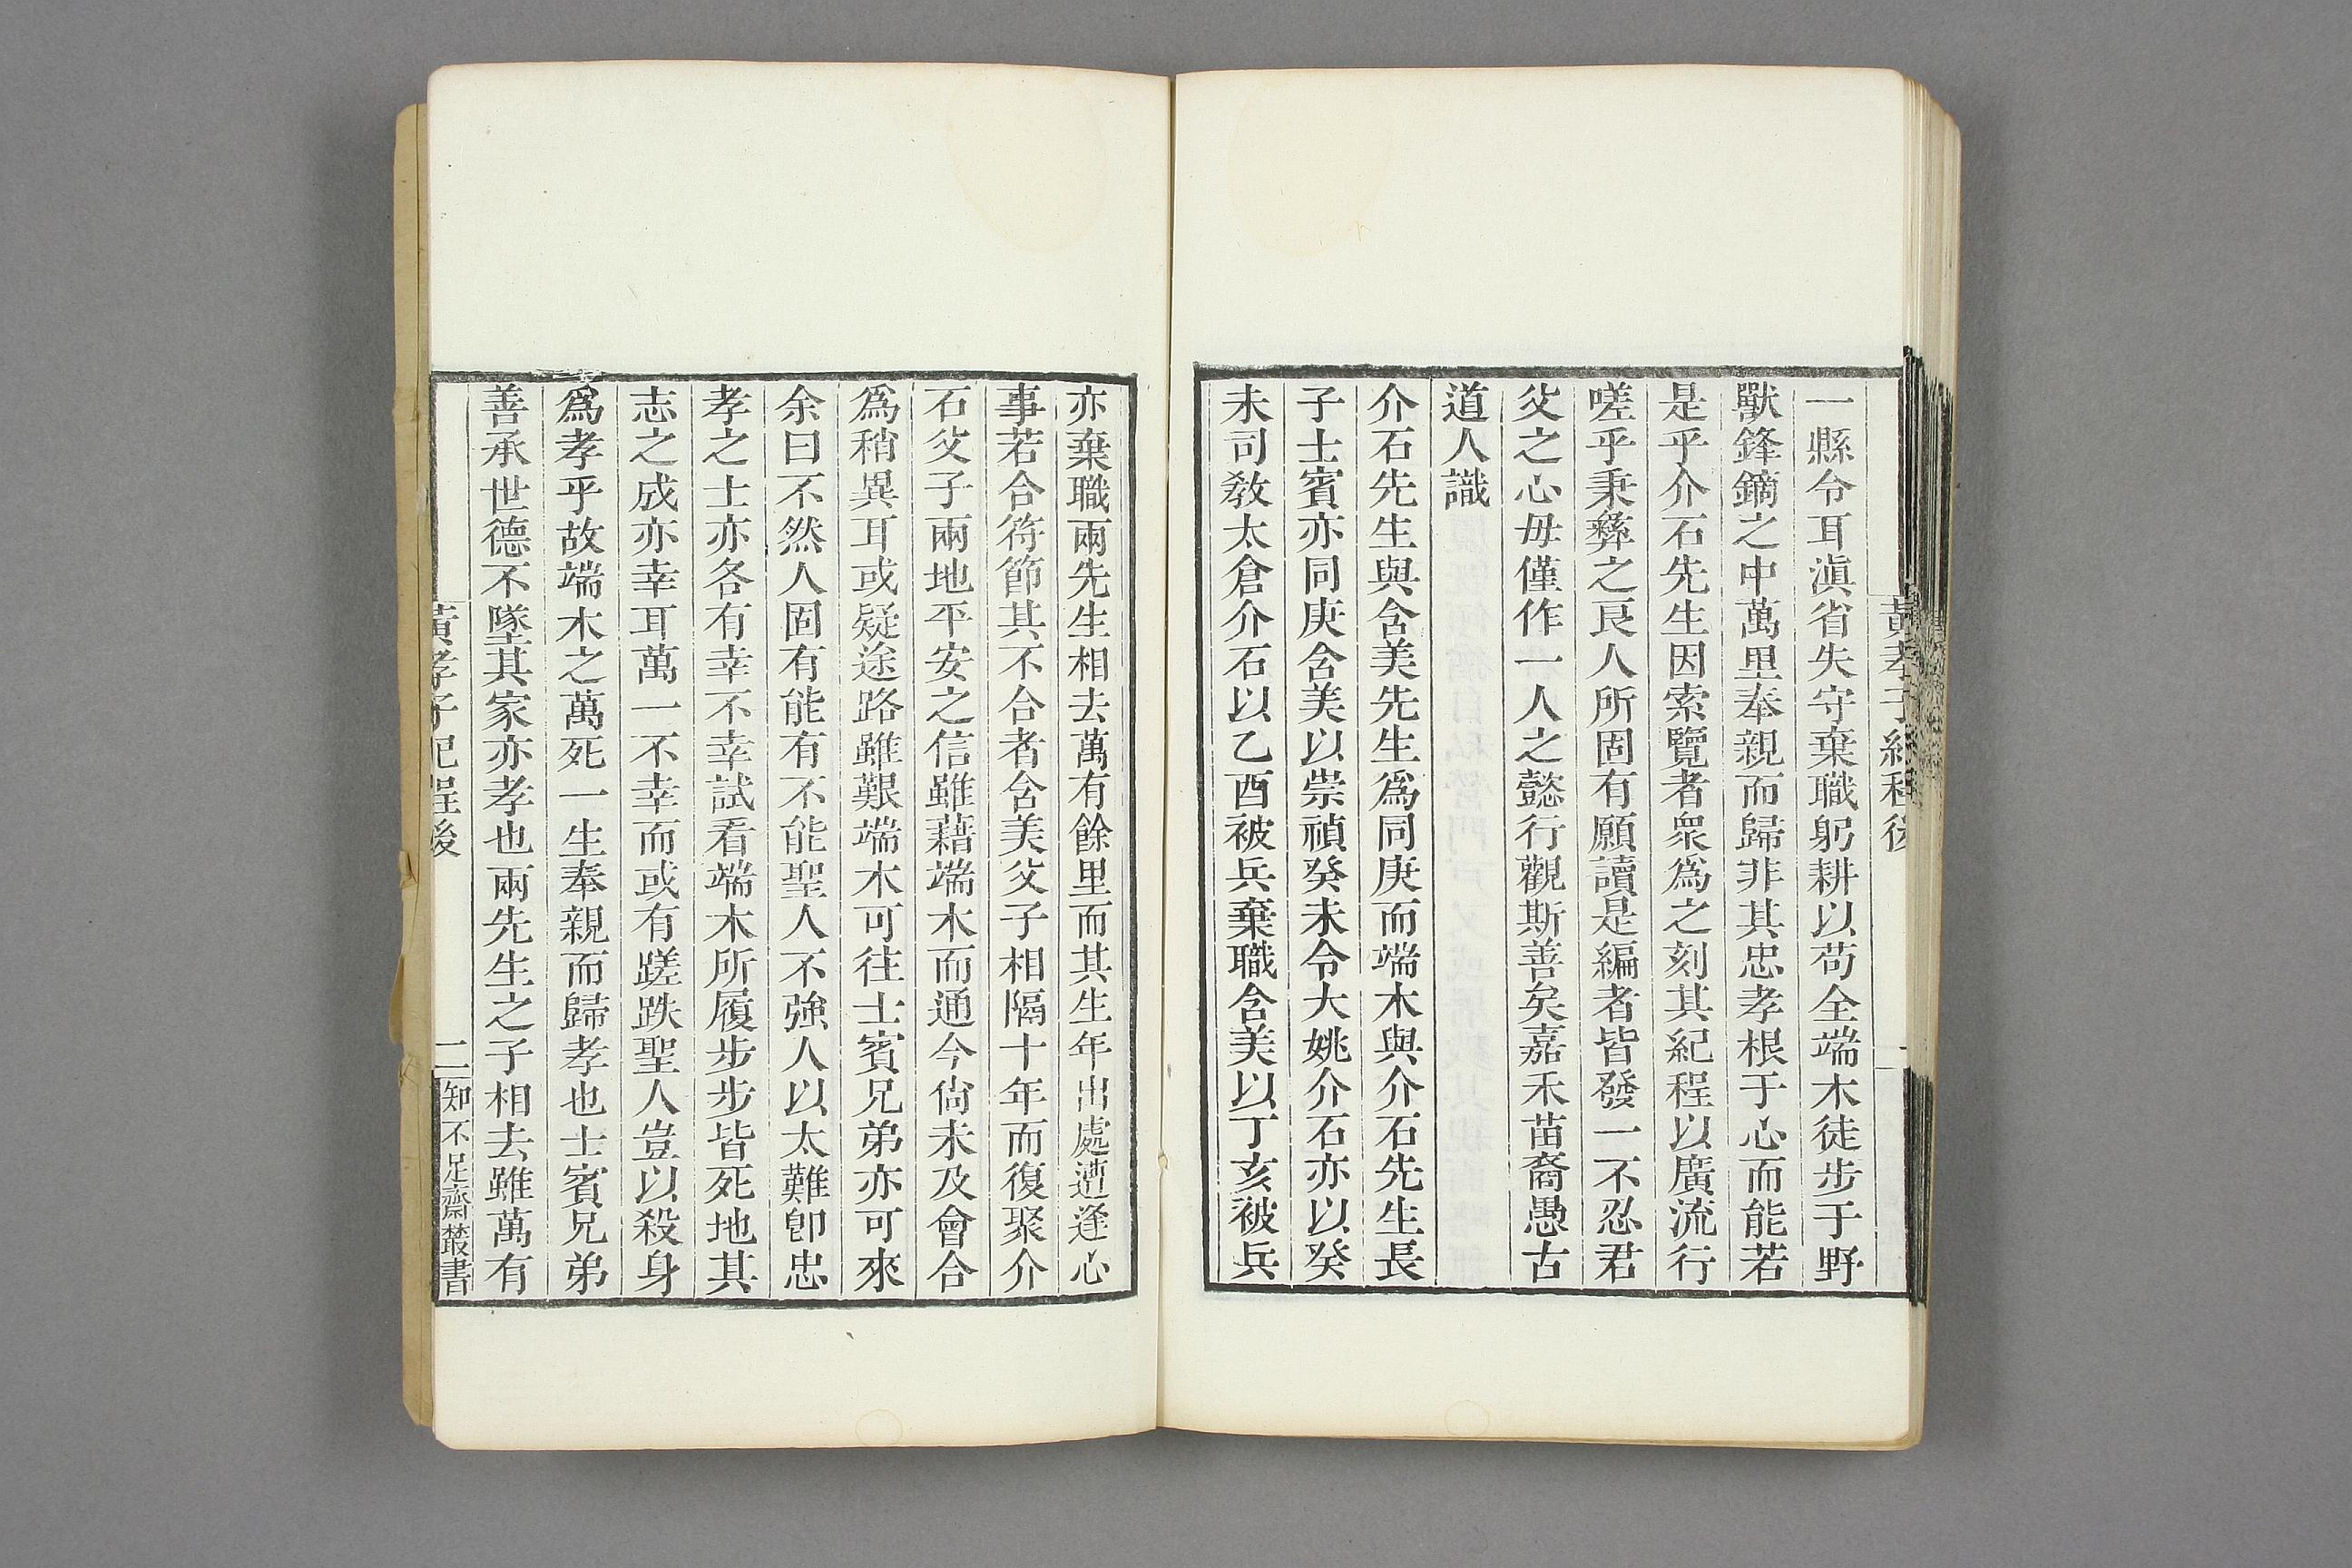 黃孝子紀程後
一縣令耳滇省失守棄職躬耕以苟全端木徒步于野
獸鋒鏑之中萬里奉親而歸非其忠孝根于心而能若
是乎介石先生因索覽者衆爲之刻其紀程以廣流行
嗟乎秉彜之良人所固有願讀是編者皆發一不忍君
父之心毋僅作一人之懿行觀斯善矣嘉禾苗裔愚古
道人識
介石先生與含美先生爲同庚而端木與介石先生長
子士賓亦同庚含美以崇禎癸未令大姚介石亦以癸
未司敎太倉介石以乙酉被兵棄職含美以丁亥被兵
亦棄職兩先生相去萬有餘里而其生年出處遭逢心
事若合符節其不合者含美父子相隔十年而復聚介
石父子兩地平安之信雖藉端木而通今尙未及會合
爲稍異耳或疑途路雖艱端木可往士賓兄弟亦可來
余曰不然人固有能有不能聖人不強人以太難卽忠
孝之士亦各有幸不幸試看端木所履步步皆死地其
志之成亦幸耳萬一不幸而或有蹉跌聖人豈以殺身
爲孝乎故端木之萬死一生奉親而歸孝也士賓兄弟
善承世德不墜其家亦孝也兩先生之子相去雖萬有
黃孝子紀程後
二
知不足齋叢書